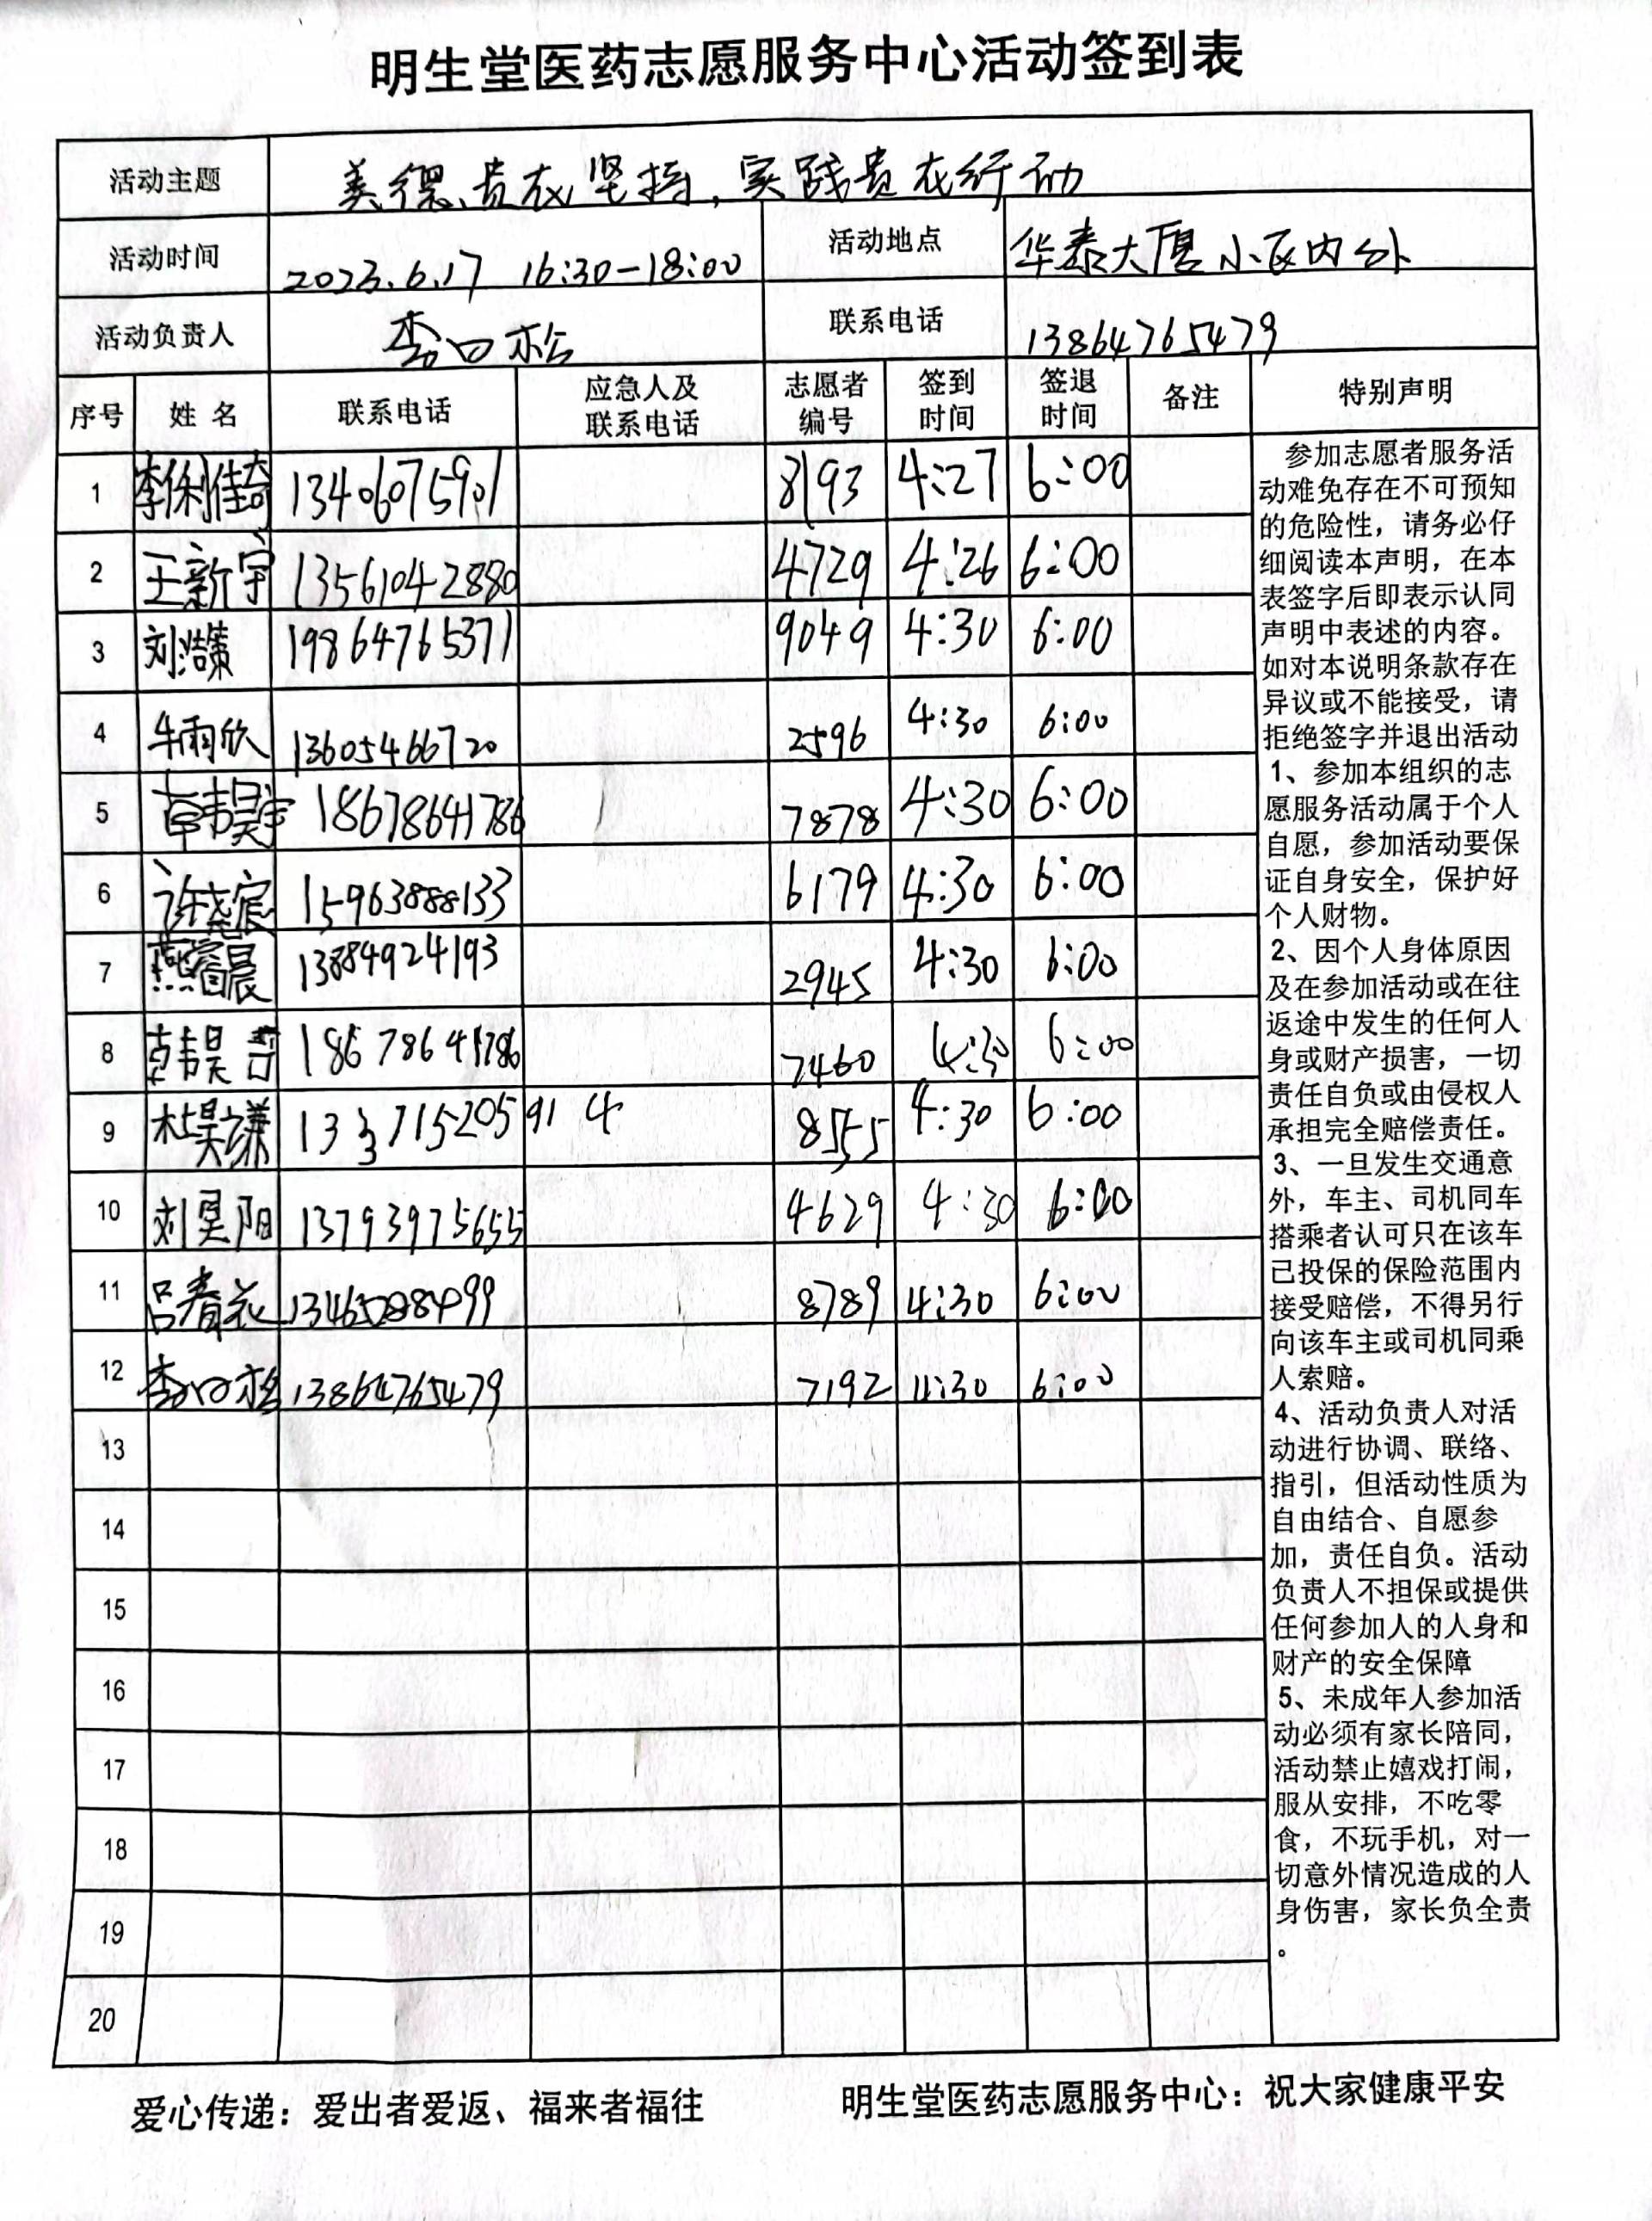 明生堂医药志愿服务中心活动签到表
活动主题 美德贵在坚持，实践贵在行动
活动时间 2023.6.17 16:30-18:00 活动地点 华泰大厦小区内外
活动负责人 李口松 联系电话 13864765479
序号 姓名 联系电话 应急人及联系电话 志愿者编号 签到时间 签退时间 备注 特别声明
1 李俐佳奇 13406075901 8193 4:27 6:00
2 王新宇 13561042880 4729 4:26 6:00
3 刘浩策 19864765371 9049 4:30 6:00
4 牛雨欣 13605466720 2596 4:30 6:00
5 韩昊宇 18678641786 7878 4:30 6:00
6 许尧宸 15963888133 6179 4:30 6:00
7 燕睿晨 13884924193 2945 4:30 6:00
8 韩昊 18678641786 7460 4:30 6:00
9 杜昊谦 4 8555 4:30 6:00
10 刘昊阳 13793975655 4629 4:30 6:00
11 吕春 8789 4:30 6:00
12 李口松 13864765479 7192 4:30 6:00
13
14
15
16
17
18
19
20
参加志愿者服务活
动难免存在不可预知
的危险性，请务必仔
细阅读本声明，在本
表签字后即表示认同
声明中表述的内容。
如对本说明条款存在
异议或不能接受，请
拒绝签字并退出活动
1、参加本组织的志
愿服务活动属于个人
自愿，参加活动要保
证自身安全，保护好
个人财物。
2、因个人身体原因
及在参加活动或在往
返途中发生的任何人
身或财产损害，一切
责任自负或由侵权人
承担完全赔偿责任。
3、一旦发生交通意
外，车主、司机同车
搭乘者认可只在该车
已投保的保险范围内
接受赔偿，不得另行
向该车主或司机同乘
人索赔。
4、活动负责人对活
动进行协调、联络、
指引，但活动性质为
自由结合、自愿参
加，责任自负。活动
负责人不担保或提供
任何参加人的人身和
财产的安全保障
5、未成年人参加活
动必须有家长陪同，
活动禁止嬉戏打闹，
服从安排，不吃零
食，不玩手机，对一
切意外情况造成的人
身伤害，家长负全责
。
爱心传递：爱出者爱返、福来者福往 明生堂医药志愿服务中心：祝大家健康平安